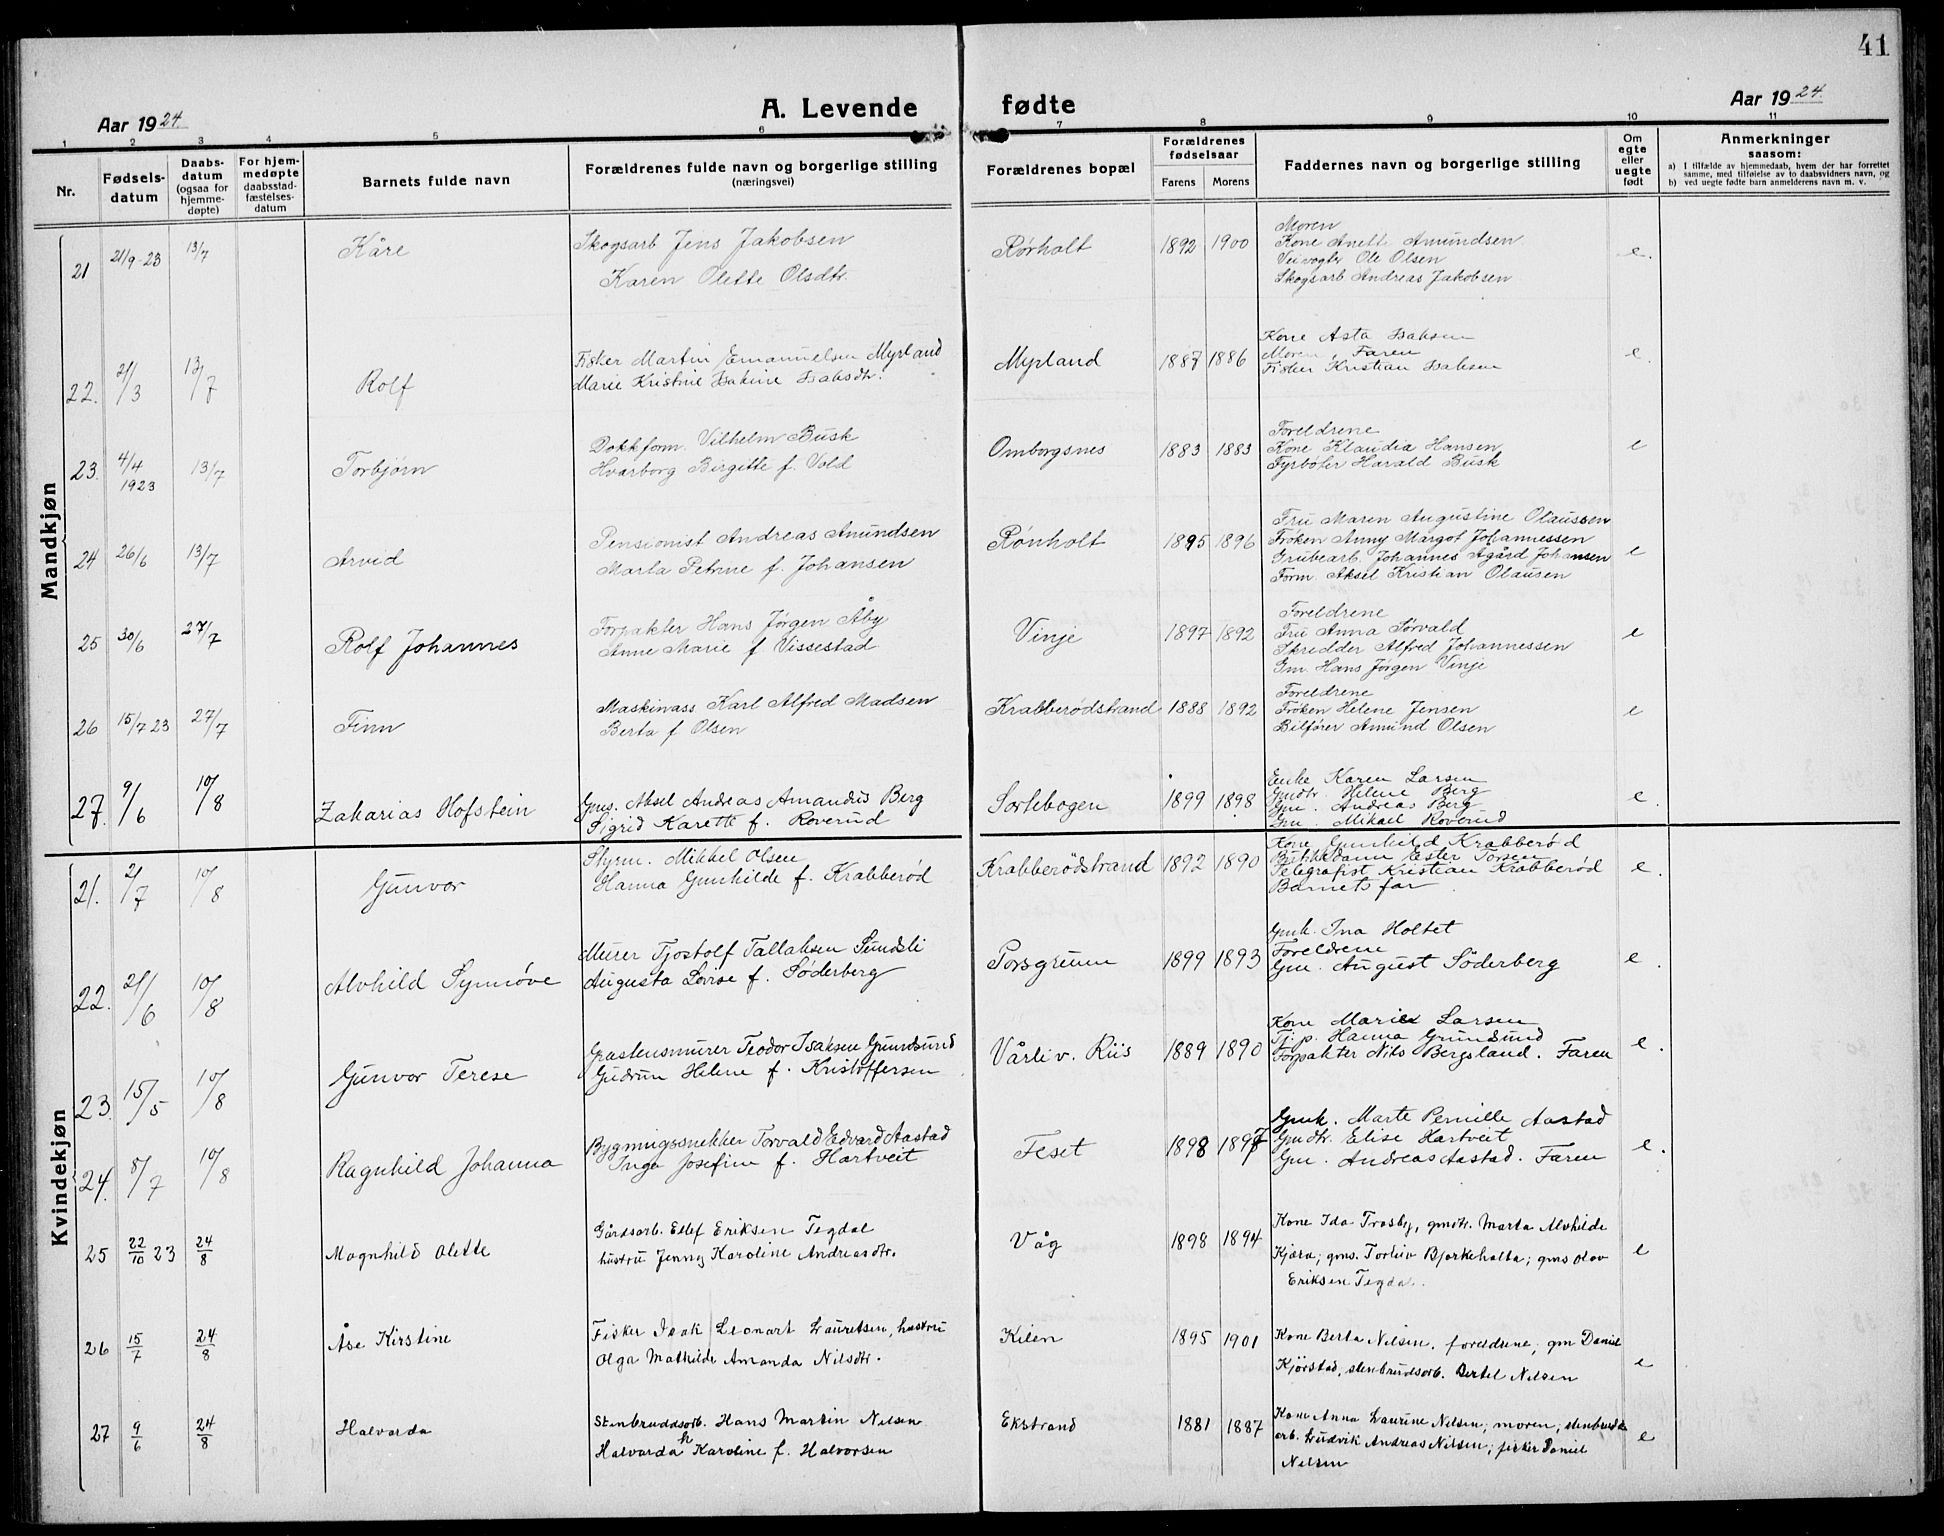 41
Aar 1924.
A. Levende fødte
Aar 1924.
1 2 3 4 5 6 7 8 9 10 11
Nr.
Fødsels-
datum
Daabs-
datum
(ogsaa for
hjemme-
døpte)
For hjem-
medøpte
daabsstad-
fæstelses-
datum
Barnets fulde navn
Forældrenes fulde navn og borgerlige stilling
(næringsvei)
Forældrenes bopæl
Forældrenes
fødselsaar
Farens Morens
Faddernes navn og borgerlige stilling
Om
egte
eller
uegte
født
Anmerkninger
saasom:
a) I tilfælde av hjemmedaab, hvem der har forrettet
samme, med tilføielse av to daabsvidners navn, og
b) ved uegte fødte barn anmelderens navn m. v.
Mandkjøn
21 21/9-23 13/7 Kåre
Skogsarb Jens Jakobsen
Karen Olette Olsdtr.
Rørholt 1892 1900
Moren
Kone Anette Amundsen
Veivogter Ole Olsen
Skogsarb Andreas Jakobsen
e.
22. 21/3 13/7 Rolf
Fisker Martin Emanuelsen Myrland
Marie Kristine Isakine Isaksdtr.
Myrland 1887 1886
Kone Asta Isaksen
Moren, Faren
Fisker Kristian Isaksen
e.
23. 4/4 1923 13/7 Torbjørn
Dokkform. Vilhelm Busk
Hvarborg Birgitte f. Vold
Omborgsnes 1883 1883
Foreldrene
Kone Klaudia Hansen
Fyrbøter Harald Busk
e
24 26/6 13/7 Arvid
Pensionist Andreas Amundsen
Marla Petrine f. Johansen
Rønholt 1895 1896
Fru Maren Augustine Olaussen
Frøken Anny Margot Johannessen
Grubearb. Johannes Agård Johansen
Form. Aksel Kristian Olausen
e
25 30/6 27/7 Rolf Johannes
Forpakter Hans Jørgen Åby
Anne Marie f Vissestad
Vinje 1897 1892
Foreldrene
Fru Anna Sørvald
Skredder Alfred Johannessen
Gm. Hans Jørgen Vinje
e
26 15/7 23 27/7 Finn
Maskinass Karl Alfred Madsen
Berta f Olsen
Krabberødstrand 1888 1892
Foreldrene
Frøken Helene Jensen
Bilfører Amund Olsen
e
27. 9/6 10/8 Zakarias Hofstein
Gms. Aksel Andreas Amandus Berg
Sigrid Karette f. Roverud
Sortebogen 1899 1898
Enke Karen Larsen
Gmdtr. Helene Berg
Gm. Andreas Berg
Gm. Mikael Roverud
e.
Kvindekjøn
21. 2/7 10/8 Gunvor
Styrm. Mikkel Olsen
Hanna Gunhilde f. Krabberød
Krabberødstrand 1892 1890
Kone Gunhild Krabberød
Butikkdame Ester Torsen
Telegrafist Kristian Krabberød
Barnets far
e.
22. 21/6 10/8 Alvhild Synnøve
Murer Tjostolf Tallaksen Sundsli
Augusta Lovise f. Söderberg
Porsgrunn 1899 1893
Gmk. Ina Holtet
Foreldrene
Gm. August Söderberg
e.
23. 15/5 10/8 Gunvor Terese
Gråstensmurer Teodor Isaksen Grundsund
Gudrun Helene f. Kristoffersen
Vårli v. Riis 1889 1890
Kone Marie Larsen
Tj.p. Hanna Grundsund
Forpakter Nils Bergsland. Faren
e.
24. 8/7 10/8 Ragnhild Johanna
Bygningssnekker Torvald Edvard Aastad
Inga Josefine f. Hartveit
Feset 1898 1897
Gmk. Marte Pernille Aastad
Gmdtr. Elise Hartveit
Gm. Andreas Aastad. Faren
e.
25 22/10 23 24/8 Magnhild Olette
Gårdsarb. Ellef Eriksen Tegdal
hustru Jenny Karoline Andreasdtr.
Våg 1898 1894
Kone Ida Trosby, gmdtr. Marta Alvhilde
Kjæra; gms. Torleiv Bjørkeholta; gms Olav
Eriksen Tegda..
e
26 15/7 24/8 Åse Kirstine
Fisker Isak Leonart Lauretsen, hustru
Olga Mathilde Amanda Nilsdtr.
Kilen 1895 1901
Kone Berta Nilsen, foreldrene, gm Daniel
Kjørstad, stenbrudsarb. Bertel Nilsen
e
27 9/6 24/8 Halvarda
Stenbruddsarb. Hans Martin Nilsen
h
Halvarda Karoline f. Halvorsen
Ekstrand 1881 1887
Kone Anna Laurine Nilsen; moren; stenbrudd-
arb. Ludvik Andreas Nilsen; fisker Daniel
Nilsen
e